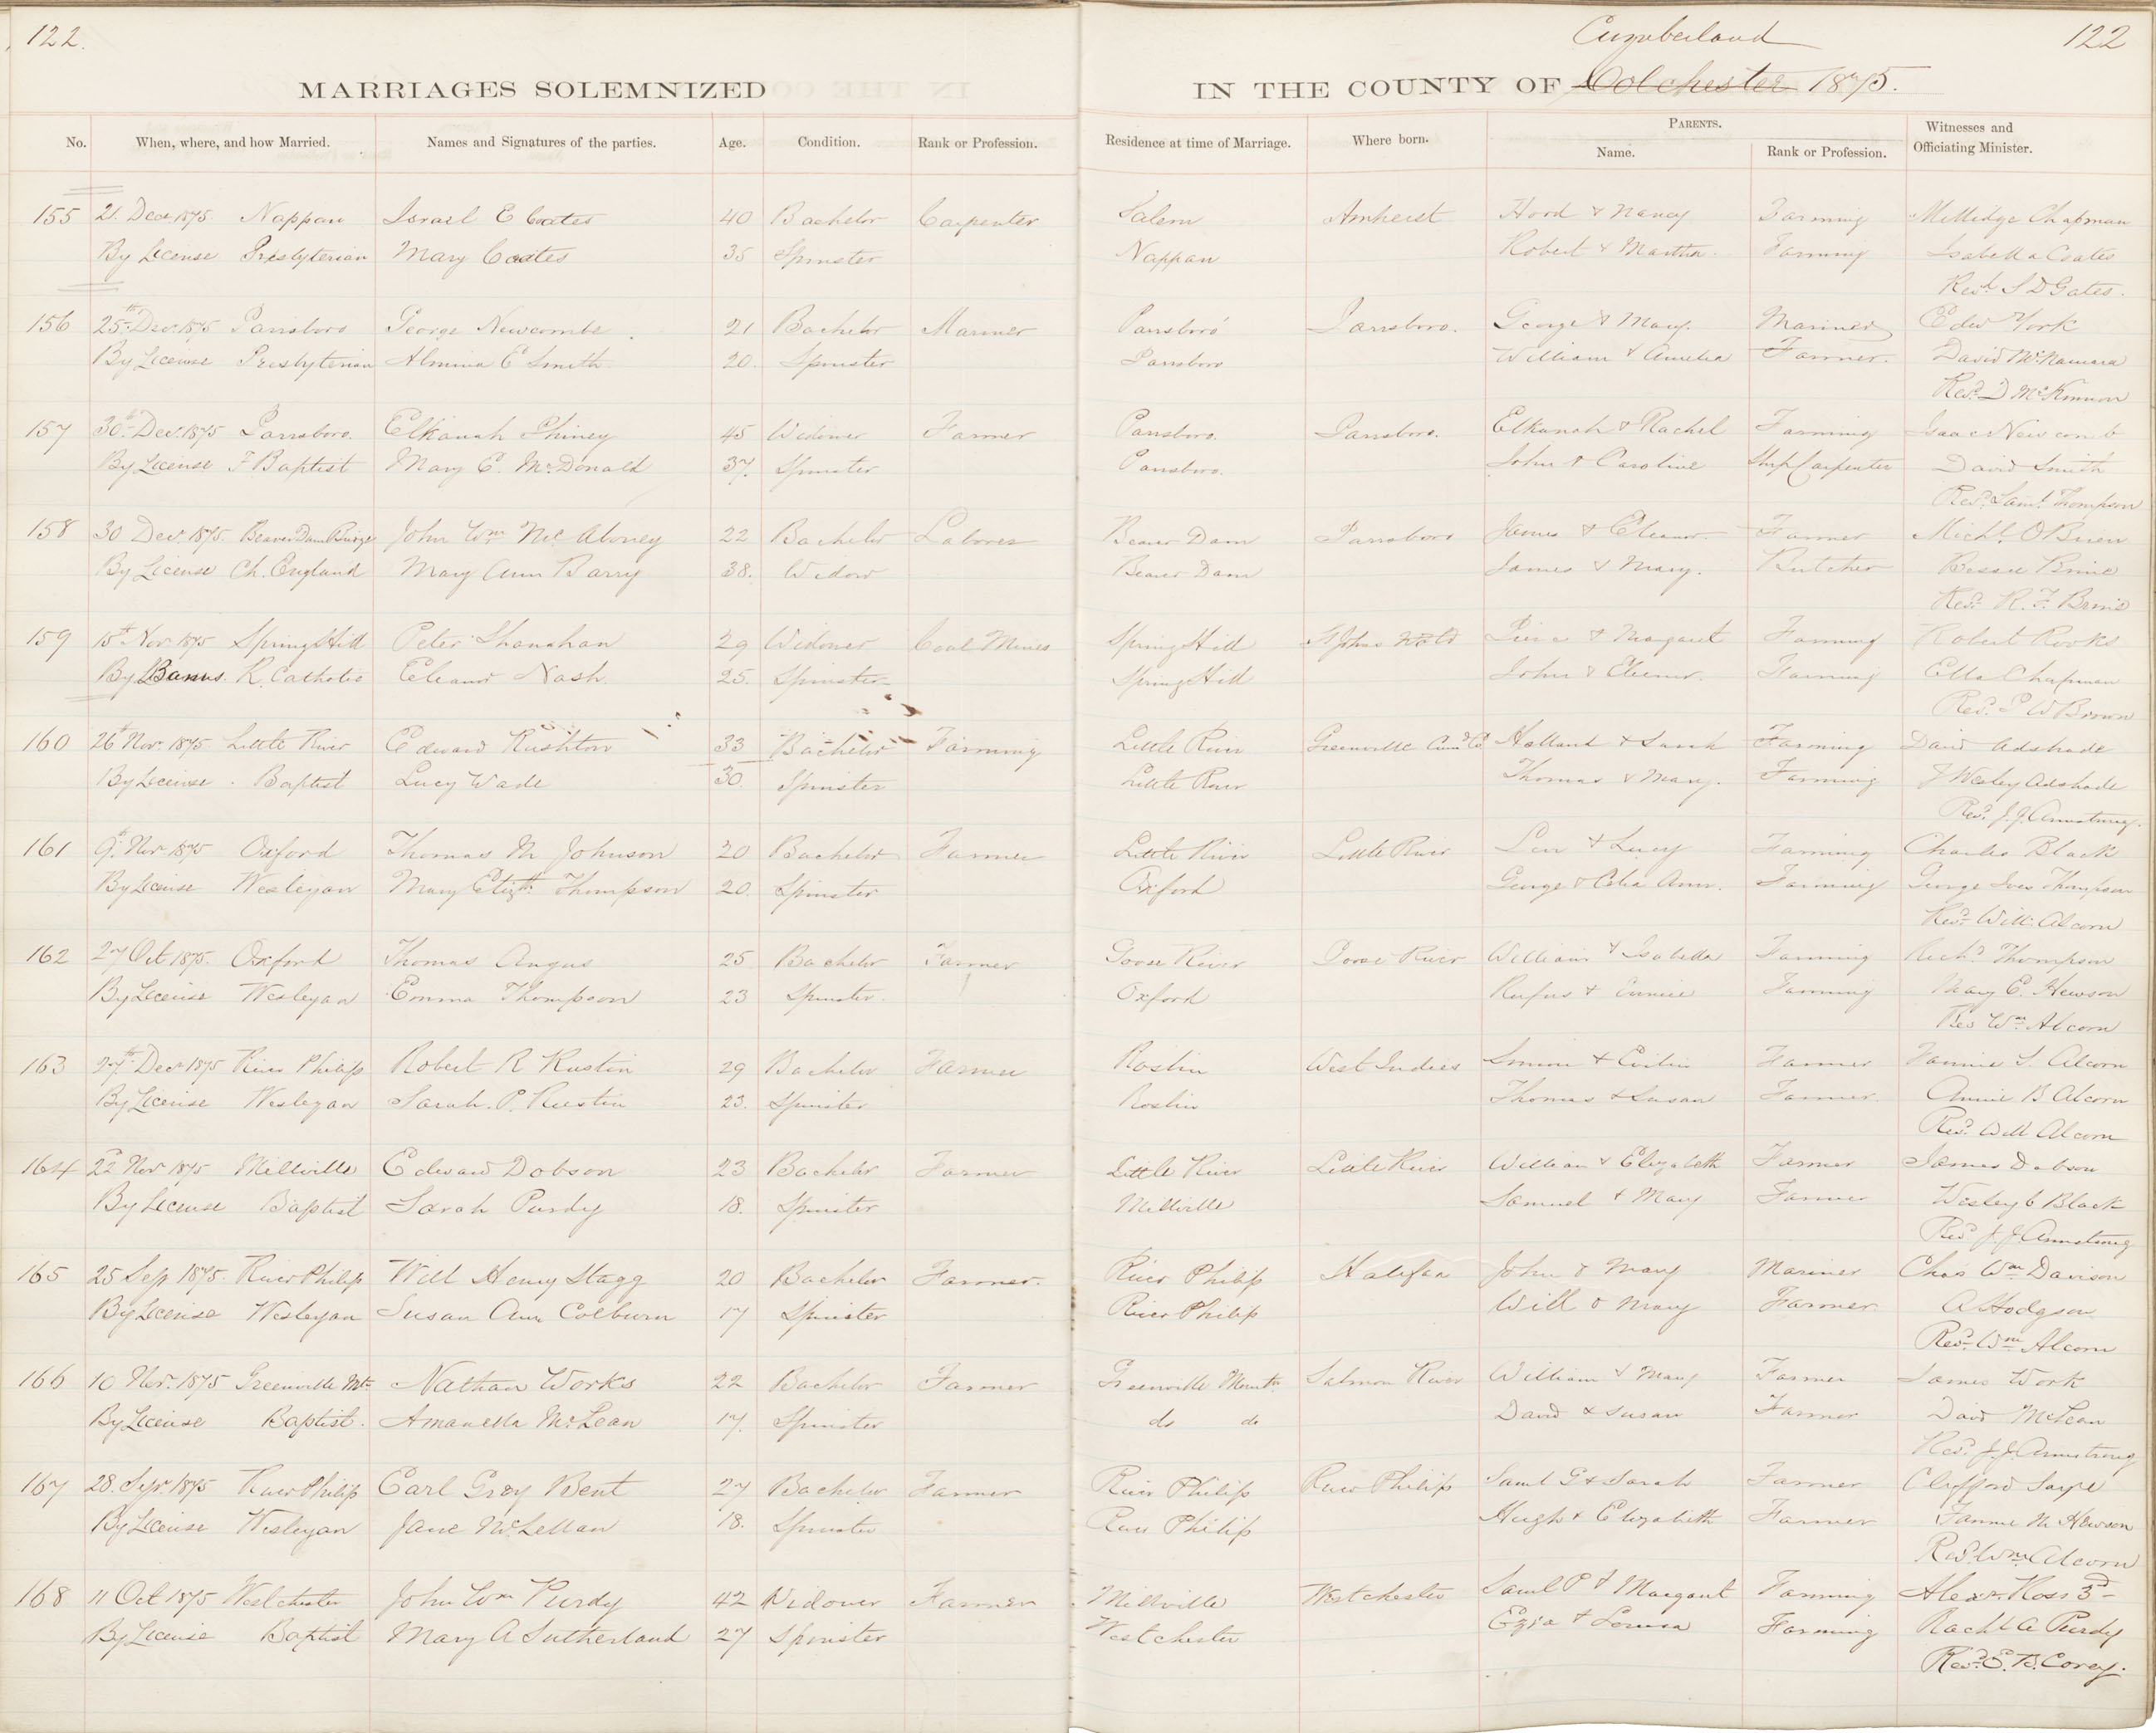 122.
Cumberland
122
MARRIAGES SOLEMNIZED IN THE COUNTY OF Colchester 1875.
No. When, where, and how Married. Names and Signatures of the parties. Age. Condition. Rank or Profession. Residence at time of Marriage. Where born. PARENTS. Name. Rank or Profession. Witnesses and Officiating Minister.
155 21. Decr 1875 Nappan Israel E Coates 40 Bachelor Carpenter Salem Amherst Hood & Nancy Farming Millidge Chapman
By License Presbyterian Mary Coates 35 Spinster Nappan Robert & Martha Farming Isabella Coates
Revd S D Gates.
156 25th Decr 1875 Parrsboro George Newcombe 21 Bachelor Mariner Parrsboro Parrsboro. George & Mary. Mariner Edw York
By License Presbyterian Almina E Smith 20. Spinster Parrsboro William & Amelia Farmer. David McNamara
Revd D McKinnon
157 30th Decr 1875 Parrsboro. Elkanah Phiney 45 Widower Farmer Parrsboro. Parrsboro. Elkanah & Rachel Farming Isaac Newcomb
By License F Baptist Mary E. McDonald 37. Spinster Parrsboro. John & Caroline Ship Carpenter David Smith
Revd Saml Thompson
158 30 Decr 1875. Beaver Dam John Wm McAloney 22 Bachelor Laborer Beaver Dam Parrsboro James & Eleanor Farmer Michl O'Brien
By License Ch. England Mary Ann Barry 38. Widow Beaver Dam James & Mary. Butcher Bessie Brine
Revd R. F. Brine
159 15th Nov 1875 Spring Hill Peter Shanahan 29 Widower Coal Mines Spring Hill St Johns Nfld & Margaret Farming Robert Rooks
By Banns. R. Catholic Eleanor Nash 25. Spinster Spring Hill John & Eleenor. Farming Ella Chapman
Revd P W Brown
160 26th Nov. 1875 Little River Edward Rushton 33 Bachelor Farming Little River Greenville Holland & Sarah Farming David Adshade
By License . Baptist Lucy Wade 30. Spinster Little River Thomas & Mary. Farming J Wesley Adshade
Revd J. J. Armstrong.
161 9th Nov. 1875 Oxford Thomas M Johnson 20 Bachelor Farmer Little River Little River Levi & Lucy Farming Charles Black
By License Wesleyan Mary Elizth Thompson 20. Spinster Oxford George & Celia Ann. Farming George Ives Thompson
Revd Will. Alcorn
162 27 Oct 1875. Oxford Thomas Angus 25 Bachelor Farmer Goose River Goose River William & Isabella Farming Richd Thompson
By License Wesleyan Emma Thompson 23 Spinster. Oxford Rufus & Eunice Farming Mary E. Hewson
Rev Wm Alcorn
163 27th Decr 1875 River Philip Robert R Rustin 29 Bachelor Farmer Roslin West Indies Simon & Farmer Fannie S. Alcorn
By License Wesleyan Sarah. P. Rustin 23. Spinster Roslin Thomas & Susan Farmer. Annie B Alcorn
Revd Will Alcorn
164 22d Nov 1875 Millville Edward Dobson 23 Bachelor Farmer Little River Little River William & Elizabeth Farmer James Dobson
By License Baptist Sarah Purdy 18. Spinster Millville Samuel & Mary Farmer Wesley C Black
Revd J. J Armstrong
165 25 Sep 1875. River Philip Will Henry Stagg 20 Bachelor Farmer. River Philip Halifax John & Mary Mariner Chas Wm Davison
By License Wesleyan Susan Ann Colburn 17 Spinster River Philip Will & Mary Farmer. A Hodgson
Revd Wm Alcorn
166 10 Nov. 1875 Greenville Mtn Nathan Works 22 Bachelor Farmer Greenville Mountn Salmon River William & Mary Farmer James Work
By License Baptist. Amanella McLean 17. Spinster do do David & Susan Farmer David McLean
Revd J. J. Armstrong
167 28. Sepr 1875 River Philip Earl Grey Bent 27 Bachelor Farmer River Philip River Philip Saml G & Sarah Farmer Clifford
By License Wesleyan Jane McLellan 18. Spinster River Philip Hugh & Elizabeth Farmer Fannie M Hewson
Revd Wm Alcorn
168 11 Oct 1875 Westchester John Wm Purdy 42 Widower Farmer Millville Westchester Saml P & Margaret Farming Alexr Ross 3d
By License Baptist Mary A Sutherland 27 Spinster Westchester Ezra & Louisa Farming Rachl A Purdy
Revd E. B. Corey.